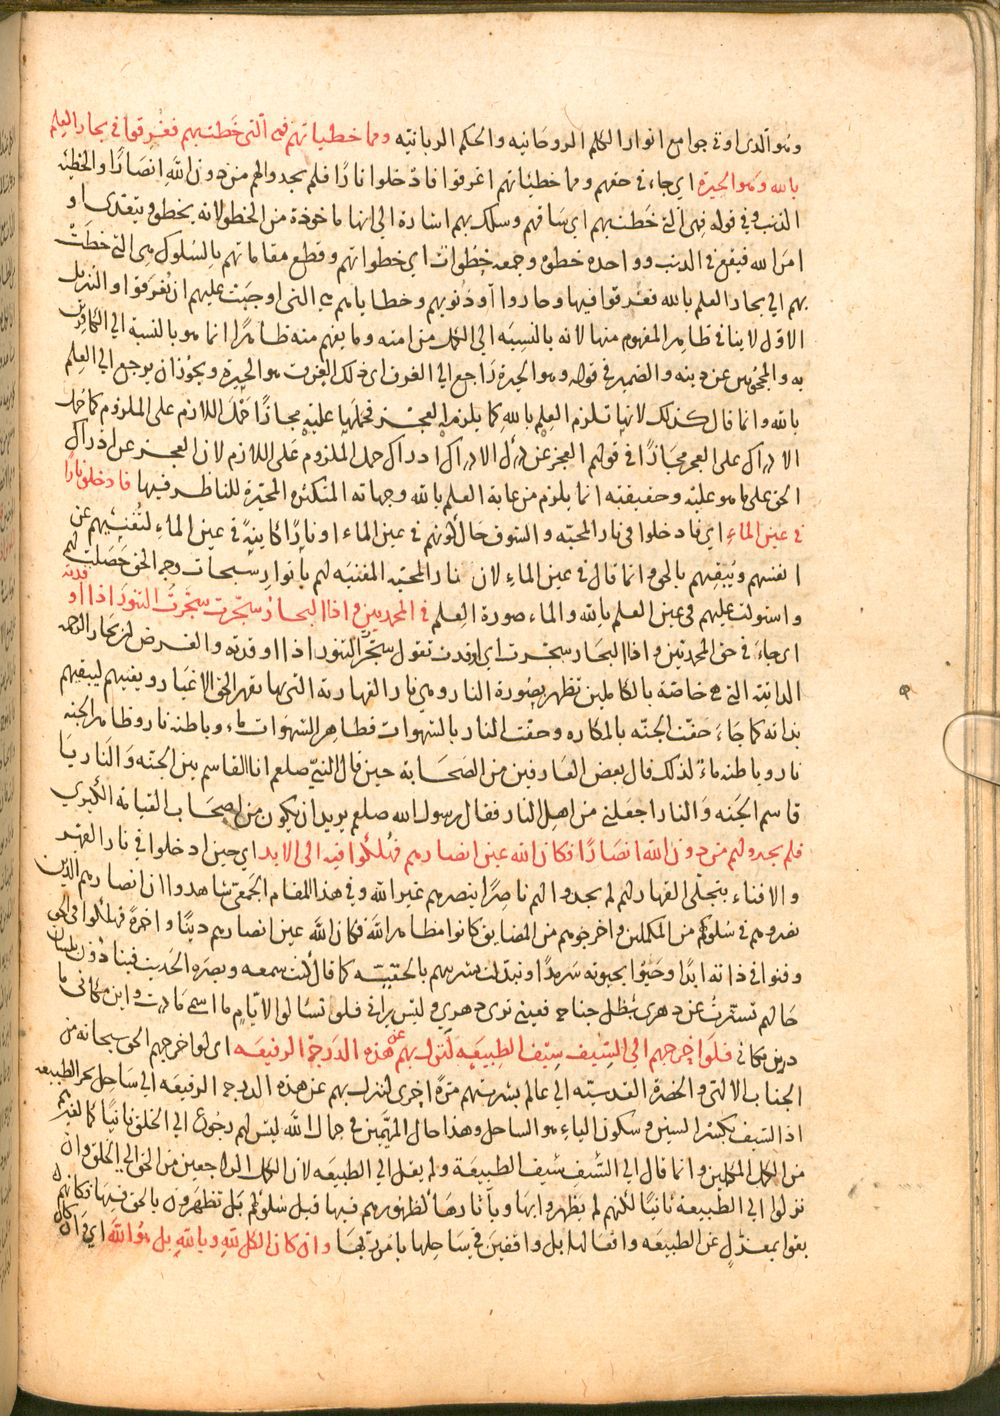 وهو الذى اوتى جوامع انوار الكلم الروحانيه والحكم الربانيه ومما خطياتهم فهى التى خَطَت بهم فغرقوا فى بحار العلم
بالله وهو الحيرة اى جاء فى حقهم ومما خطيئاتهم اغرقوا فادخلوا نارًا فلم يجدوا لهم من دون اللهِ انصَارًا والخطيئة
الذنب وفى قوله فهى التى خَطَت بهم اى سَاقهم وسلك بهم اشارة الى انها ماخوذة من الخطو لانه يخطو ويتعدى او
امرَ الله فيقع فى الذنب وواحده خطوه وجمعه خطُوات اى خطواتهم وقطع مقاماتهم بالسُلوك هى التى خطَتْ
بهم الى بحار العلم بالله فغرقوا فيها وحاروا او ذنوبهم وخطاياهم هى التى اوجبَت عليهم ان يغرقوا والتنزيل
الاوّل لا ينافى ظاهر المفهوم منها لانه بالنسبَه الى الكمّل من امته وما يفهم منه ظاهرًا انما هو بالنسبة الى الكافرين
به والمحجوبين عن دينه والضمير فى قوله وهو الحيرة رَاجع الى الغرق اى ذلك الغرق هو الحيرة ويجوز ان يرجع الى العلم
بالله وانما قال كذلك لانها تلزم العلم بالله كما يلزمه العجز فحملها عليه مجازًا حَمْلَ اللازم على الملزوم كما حمل
الادراك على العجز مجَازًا فى قولهم العجز عن درك الادراك ادراك حمل الملزوم عَلى اللازم لان العجز عن ادراك
الحق على ما هو عليه وحقيقته انما يلزم من غاية العلم بالله وجهاته المتكثره المحيّرة للناظر فيها فادخلوا نارًا
فى عين الماءِ اى فادخلوا فى نار المحبّه والشوق حَال كونهم فى عين الماء او نارًا كاينةً فى عين الماءِ لتُفنيهم عن
انفسهم ويُبقِيهم بالحق وانما قال فى عين الماءِ لان نار المحبّه المفنيَه لهم بانوار سبحات وجه الحق حَصَلت لهم
واستولت عليهم فى عين العلم بالله والماء صورة العِلم فى المحمديين واذا البحار سجّرت سجّرتُ التنورَ اذا او
قدته
اى جاءَ فى حق المحمديين واذا البحَار سجّرت اى اوقدت تقول سجّرتُ التنور اذا اوقدته والغرض ان بحار الرحمة
الذاتيّه التى هى خاصَّة بالكاملين تظهر بصُورة النار وهى نار القهاريه التى بها يقهر الحق الاغيَار ويفنيهم ليبقيهم
بذاته كما جَاءَ حفّت الجنّه بالمكاره وحفّت النار بالشهوات فظاهر الشهوَات ماء وباطنه نار وظاهر الجنه
نار وباطنه ماءٌ لذلك قال بعض العَارفين من الصَحَابة حين قال النبىّ صلعم انا القاسم بين الجنّه وَالنار يا
قاسم الجَنه وَالنار اجعَلنى من اهل النار فقال رسول الله صلعم يريد ان يكون من اصحَاب القيامة الكبرى
فلم يجدوا لهم من دون الله انصَارًا فكان الله عين انصارهم فهَلكُوا فيه الى الابد اى حين ادخلوا فى نار القهر
والافناء بتجلّى القهار لهم لم يجدوا لهم ناصرًا ينصرهم غير الله وفى هذا المقام الجَمعىّ شاهدوا ان انصارهم الذين
نصروهم فى سُلوكهم من المكملين واخرجوهم من المضايق كانوا مظاهر اللهَ فكان اللهَ عين انصارهم دينًا واخرةً فهلكوا فى الحق
وفنوا فى ذاته ابدًا وحَيُوا بحيوته سَرمدًا وتبدلت بشريتهم بالحقيّه كما قال كنت سمعه وبصَره الحَديث فينادون بلسان
حَالهم تستّرتُ عن دهرى بظل جناحه فعينى ترى دهرى وليس يرانى فلو تسألوا الايّام ما اسمى مَا درت واين مكانى ما
درين مكانى فلو اخرجهم الى السِّيف سِيف الطبيعَه لنَزل بهم عن هذه الدَرجة الرفيعَه اى لو اخرجهم الحق سبحانه من
الجناب الالهى والحضرة القدسيّه الى عالم بشريتهم مرّةً اخرى لنزل بهم عن هذه الدرجه الرفيعَه الى سَاحل بحر الطبيعه
اذ السّيف بكسْر السين وسكون الياءِ هو الساحل وهذا حال المهيَّمين فى جمال اللهِ ليسَ لهم رجُوعٌ الى الخلق ثانيًا كما لغيرهم
من الكمل المكملين وانما قال الى السِّيف سِيف الطبيعَة ولم يقل الى الطبيعَه لان الكمل الراجعين من الحق الى الخَلق وان
نزلوا الى الطبيعة ثانيًا لكنهم لم يظهروا بها وبآثارهَا لظهورهم فيها قبل سُلوكهم بَل يظهرون بالحق فيها فكانهم
بقوا بمعَزلٍ عن الطبيعَه وافعَالها بل واقفين فى سَاحلها بامر ربّها وان كان الكل للهِ وباللهِ بل هو الله اى وَان كان